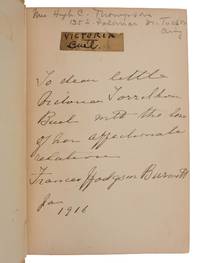 Mrs Hugh C. Thompson
VICTORIA
Buel
To dear little
Victoria Torrilhon
Buel with the love
of her affectionate
relation
Frances Hodgson Burnett
Jan
1916